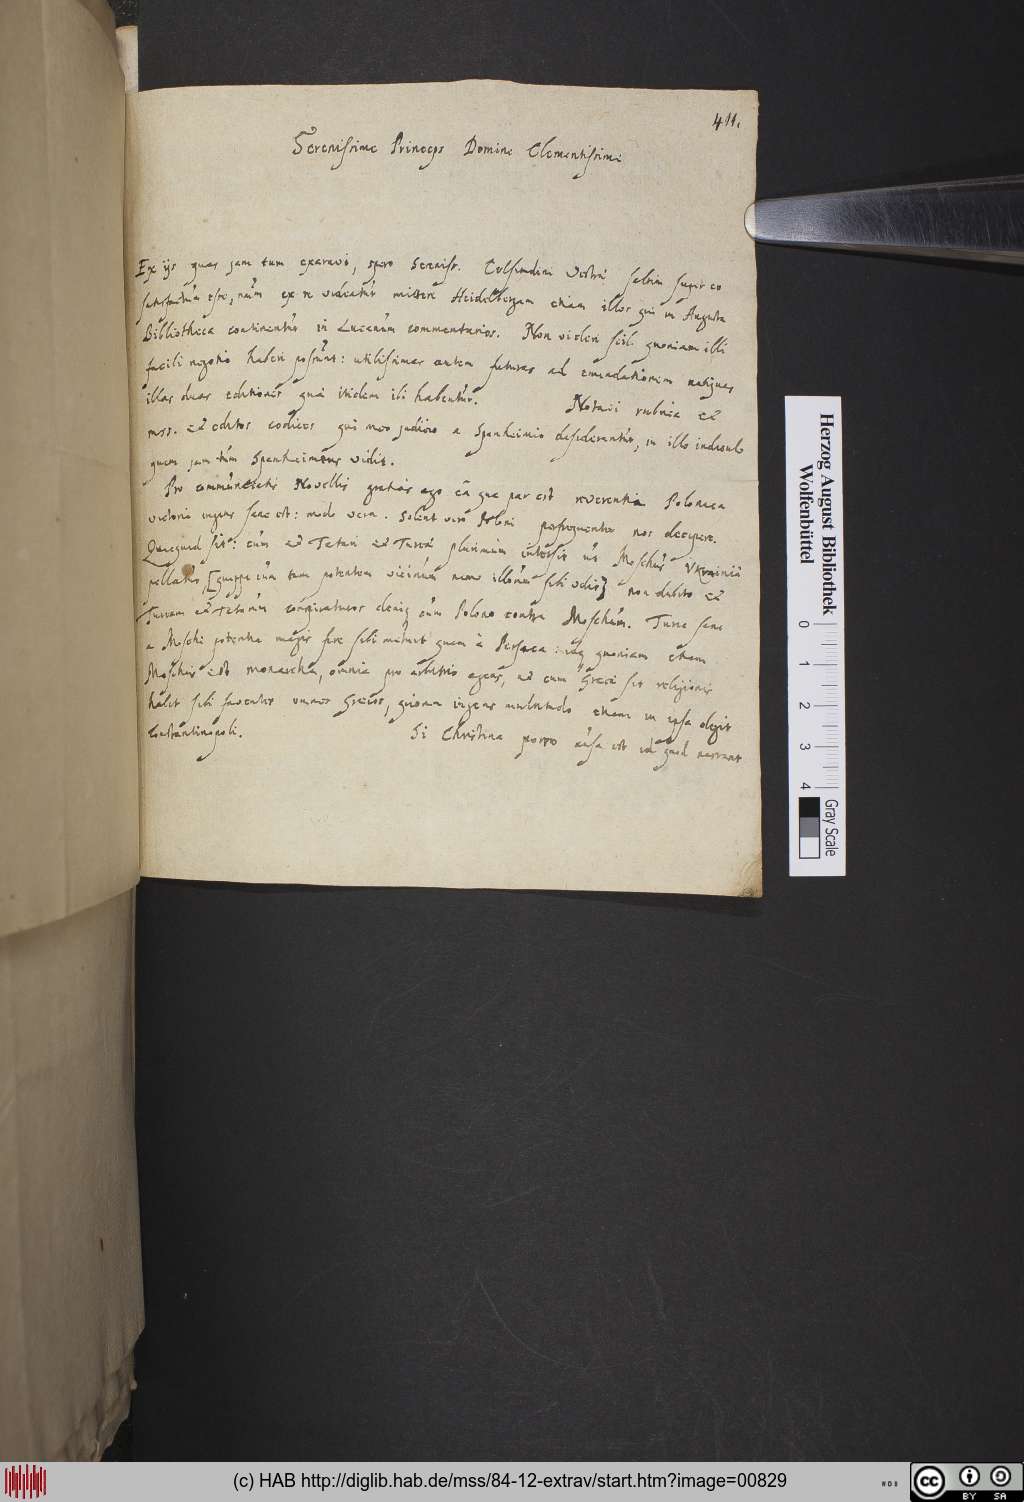 411.
Serenissime Princeps Domine Clementissime
Ex ijs quas jam tum exaravi, spero Sereniss. Celsitudini Vestrae satis super eo
satisfactum esse, num ex re videatur mittere Heidelbergam etiam illos qui in Augusta
Bibliotheca continentur in Lucanum commentarios. Non videri scil. quoniam illi
facili negotio haberi possunt: utilissimas autem futuras ad emendationem
illas duas editiones quae itidem ibi habentur. Notavi rubrica et
mss. et editos codices qui meo judicio a Spanheimio desiderantur, in illo indiculo
quem jam tum Spanheimius vidit.
Pro communicatis Novellis gratias ago ea qua par est reverentia Polonica
victoria ingens sane est: modo vera. Solent vero Poloni nos decipere.
Quicquid sit: cum et Tatari et Turcae plurimum intersit ut Moschus Ukrainia
pellatur [quippe cum tam potentem vicinum nemo illorum sibi velit] non dubito et
Turcam et Tatarum conspiraturos denique cum Polono contra Moschum. Turca sane
a Moschi potentia magis fere sibi metuit quam à Persica: quoniam etiam
Moschus est monarcha, omnia pro arbitrio agens, et cum Graecae sit religionis
habet sibi faventes omnes Graecos, quorum ingens multitudo etiam in ipsa degit
Constantinopoli. Si Christina porro ausa est id quod narrant
Herzog August Bibliothek
Wolfenbüttel
0 1 2 3 4
Gray Scale
(c) HAB http://diglib.hab.de/mss/84-12-extrav/start.htm?image=00829
cc BY SA